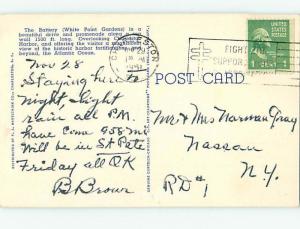 The Battery (White Point Gardens) is a
beautiful drive and promenade along
wall 1500 ft. long. Overlooking
Harbor, and offering the visitor a
view of the historic harbor fortifications
beyond, the Atlantic Ocean.
FIGHT
SUPPORT
1 CENT 1
POST CARD
Nov 28
Staying here to
night, light
rain all P.M.
have come 958 mi
Will be in St Pete
Friday all OK
B Brown
Mr & Mrs Norman Gray
Nassau
N.Y.
RD #1